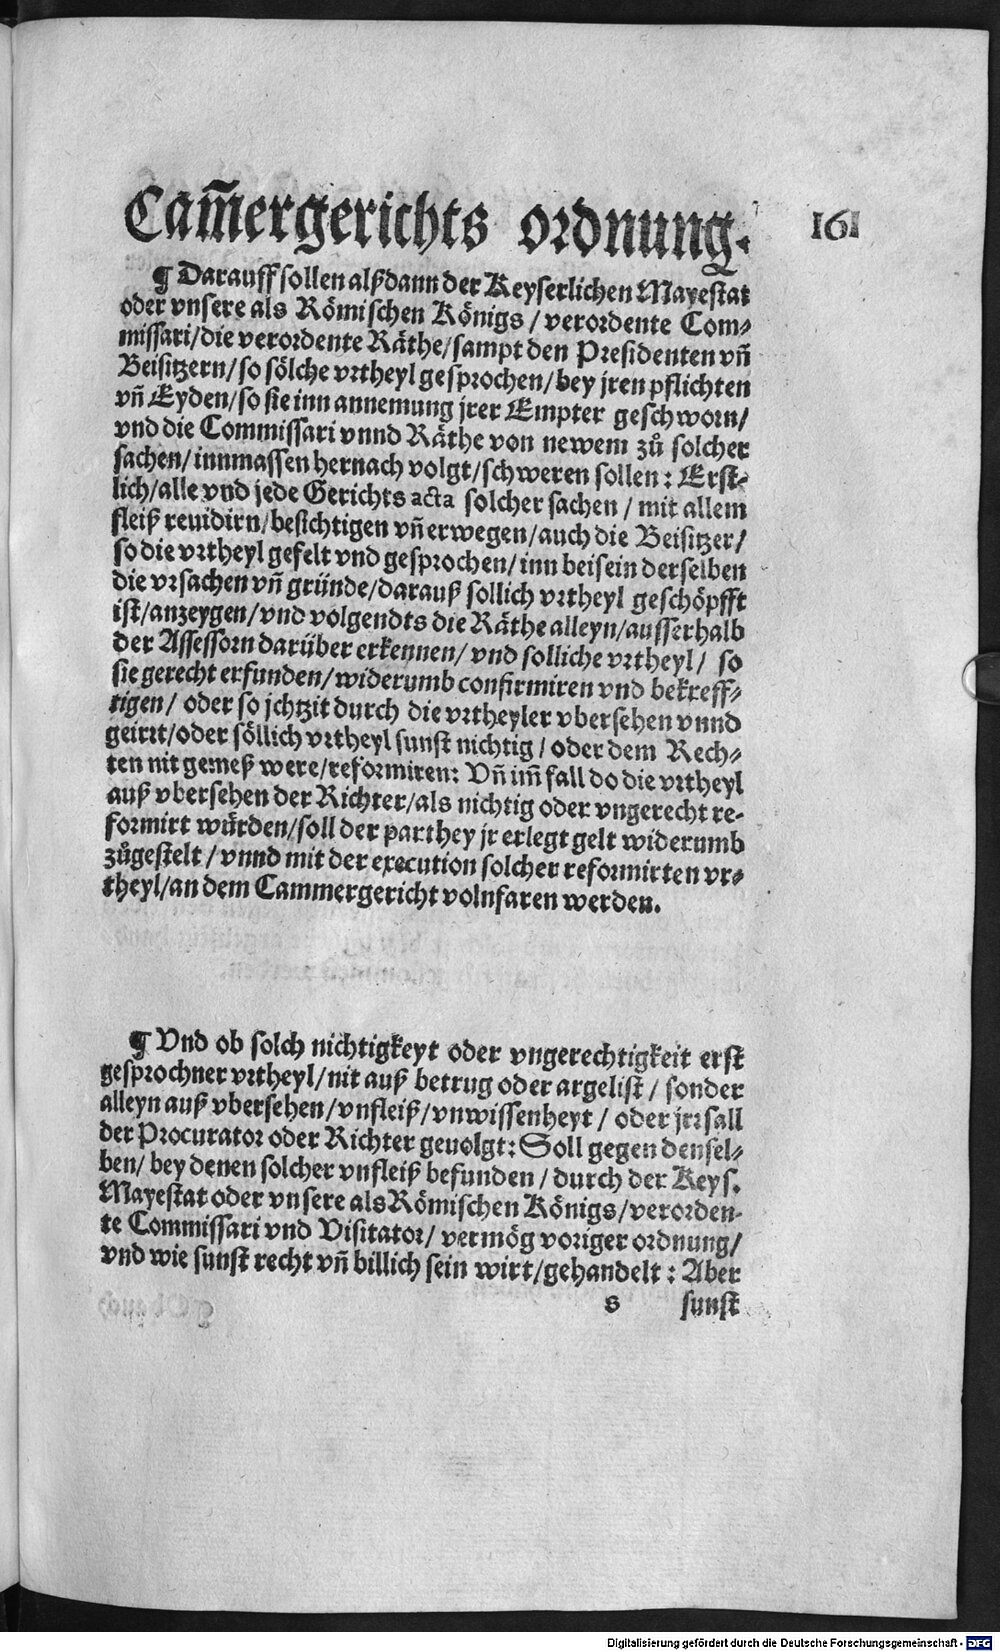 Cam̃ergerichts ordnung. 161
¶ Darauff sollen alßdann der Keyserlichen Mayestat
oder vnsere als Römischen Königs / verordente Com-
missari / die verordente Räthe / sampt den Presidenten vñ
Beisitzern / so sölche vrtheyl gesprochen / bey jren pflichten
vñ Eyden / so sie inn annemung jrer Empter geschworn /
vnd die Commissari vnnd Räthe von newem zů solcher
sachen / innmassen hernach volgt / schweren sollen : Erst-
lich / alle vnd jede Gerichts acta solcher sachen / mit allem
fleiß reuidirn / besichtigen vñ erwegen / auch die Beisitzer /
so die vrtheyl gefelt vnd gesprochen / inn beisein derselben
die vrsachen vñ gründe / darauß sollich vrtheyl geschöpfft
ist / anzeygen / vnd volgendts die Räthe alleyn / ausserhalb
der Assessorn darüber erkennen / vnd solliche vrtheyl / so
sie gerecht erfunden / widerumb confirmiren vnd bekreff-
tigen / oder so jchtzit durch die vrtheyler vbersehen vnnd
geirrt / oder söllich vrtheyl sunst nichtig / oder dem Rech-
ten nit gemeß were / reformiren : Vñ im̃ fall do die vrtheyl
auß vbersehen der Richter / als nichtig oder vngerecht re-
formirt würden / soll der parthey jr erlegt gelt widerumb
zůgestelt / vnnd mit der execution solcher reformirten vr-
theyl / an dem Cammergericht volnfaren werden.
¶ Vnd ob solch nichtigkeyt oder vngerechtigkeit erst
gesprochner vrtheyl / nit auß betrug oder argelist / sonder
alleyn auß vbersehen / vnfleiß / vnwissenheyt / oder jrrsall
der Procurator oder Richter geuolgt : Soll gegen densel-
ben / bey denen solcher vnfleiß befunden / durch der Keys.
Mayestat oder vnsere als Römischen Königs / verorden-
te Commissari vnd Visitator / vermög voriger ordnung /
vnd wie sunst recht vñ billich sein wirt / gehandelt : Aber
s sunst
Digitalisierung gefördert durch die Deutsche Forschungsgemeinschaft - DFG